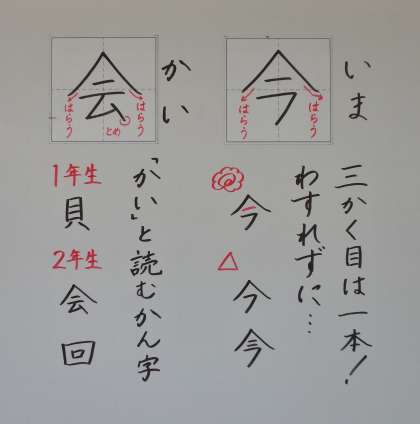 いま
今
はらう
はらう
三かく目は一本!
わすれずに…
今
△
今
今
かい
会
はらう
とめ
はらう
「かい」と読むかん字
1年生
貝
2年生
会
回